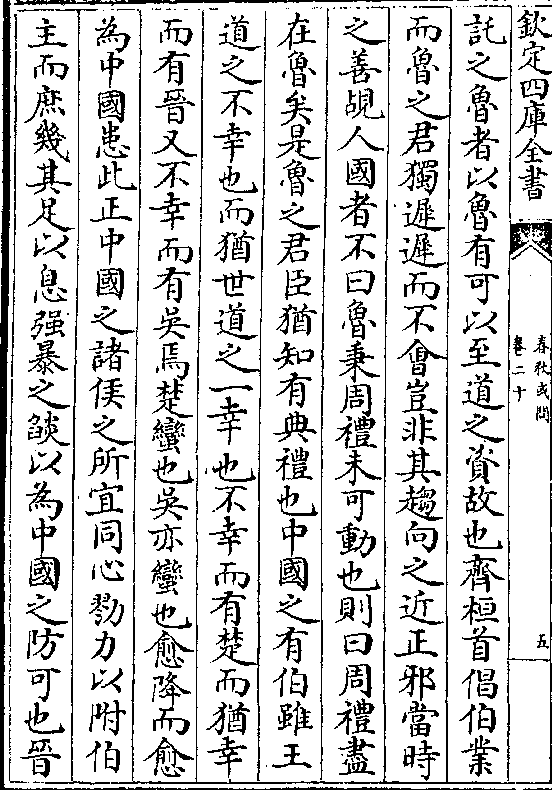 欽定四庫全書
春秋或問
卷二十
五
託之魯者以魯有可以至道之資故也齊桓首倡伯業
而魯之君獨遲遲而不會豈非其趨向之近正邪當時
之善覘人國者不曰魯秉周禮未可動也則曰周禮盡
在魯矣是魯之君臣猶知有典禮也中國之有伯雖王
道之不幸也而猶世道之一幸也不幸而有楚而猶幸
而有晉又不幸而有吳焉楚蠻也吳亦蠻也愈降而愈
為中國患此正中國之諸侯之所宜同心勠力以附伯
主而庶幾其足以息强暴之燄以為中國之防可也晉